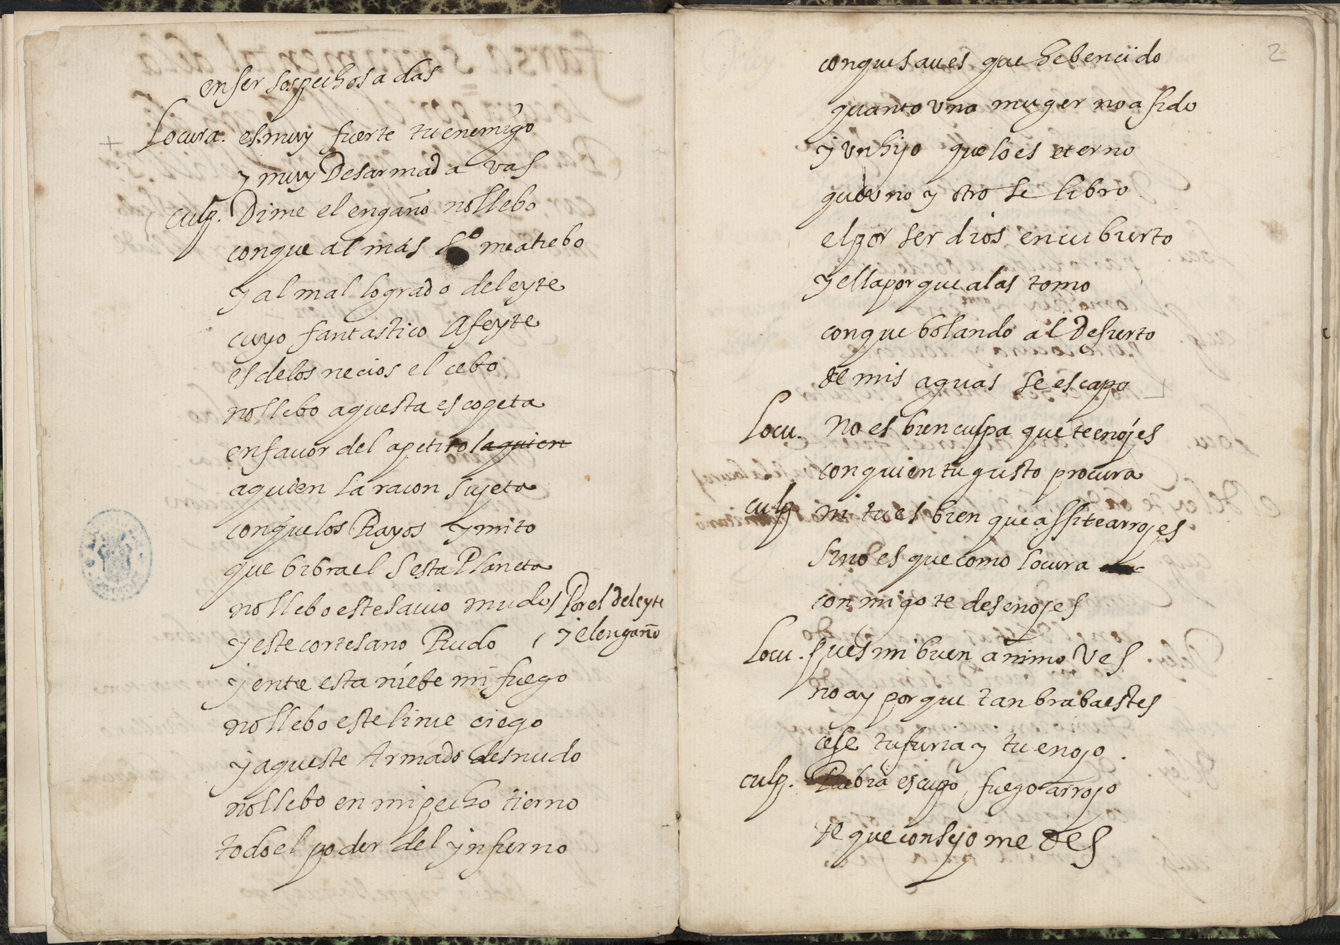 en ser sospechosa das
Locura. es muy fuerte tu enemigo
y muy Desarmada vas
culp. Dime el engaño no llebo
conque al mas me atrebo
y al mal logrado deleyte
cuyo fantastico Afeyte
es de los necios el cebo
no llebo aquesta escopeta
en favor del apetito
a quien la racon sujeta
con que los Rayos ymito
que bibra el S esta Planeta
no llebo este savio mudo Por el deleyte
y este cortesano Rudo y el engaño
y ente esta niebe mi fuego
no llebo este lince ciego
y aqueste Armado desnudo
no llebo en mi pecho tierno
todo el poder del ynfierno
2
conque saues que he bencido
quanto una muger no a sido
y un hijo que lo es eterno
que uno y otro se libro
el por ser dios encubierto
y ella porque alas tomo
conque bolando al Desierto
de mis aguas se escapo
Locu. No es bien culpa que te enojes
con quien tu gusto procura
culp. ni tu es bien que assi te arrojes
sino es que como locura
conmigo te desenojes
Locu. pues mi buen animo Ves
no ay por que tan braba estes
cese tu furia y tu enojo.
culp. Rabia escupo, fuego arrojo
de que consejo me des